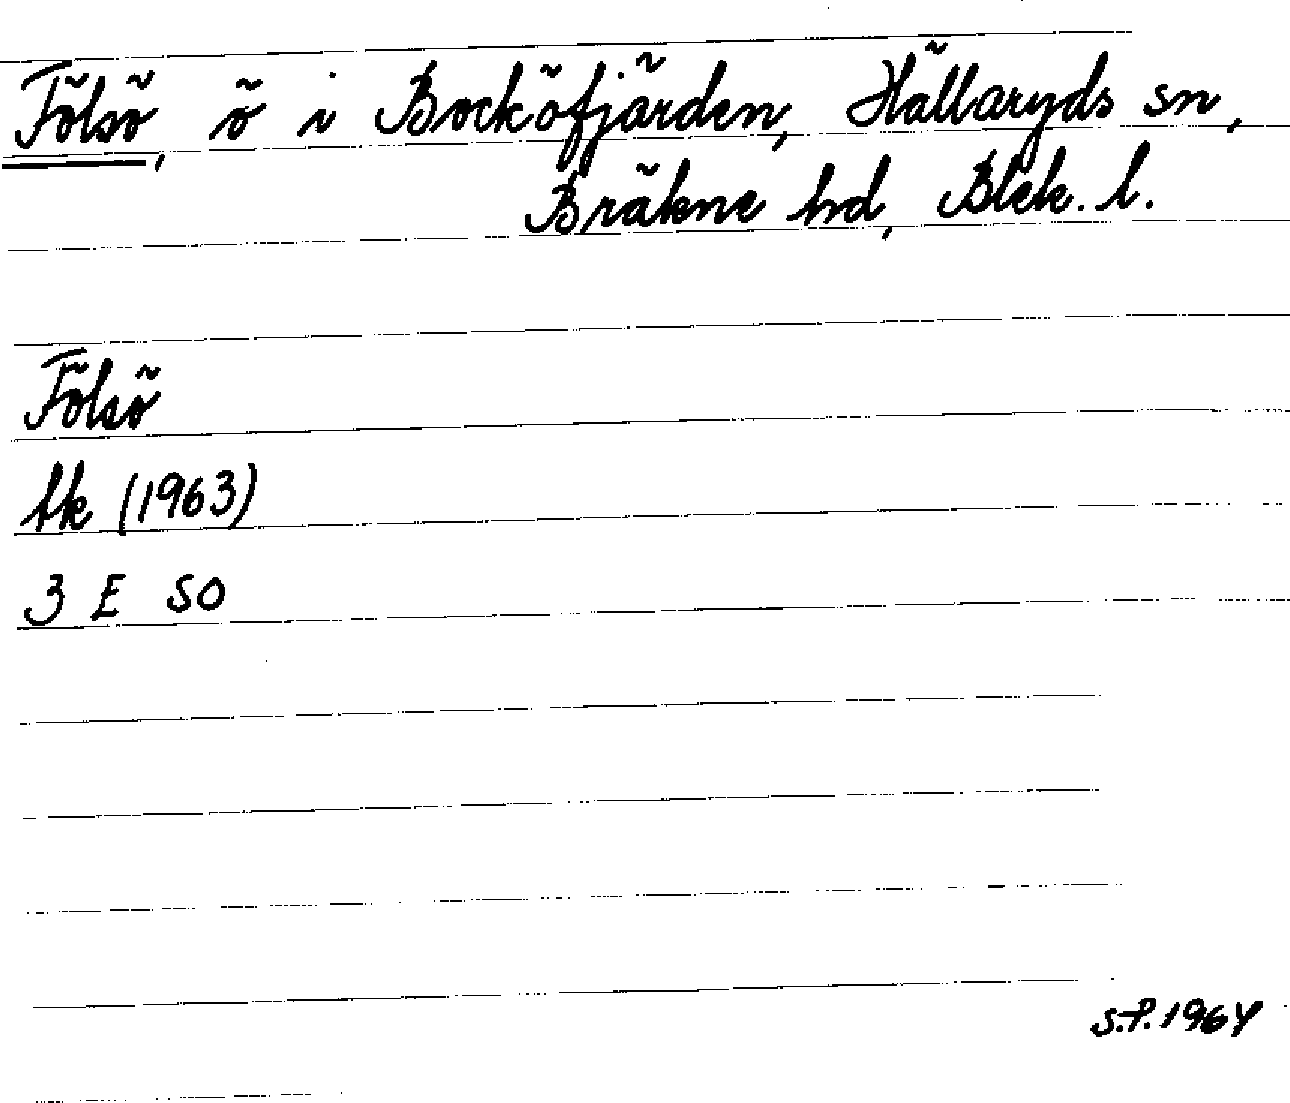 Fölsö, ö i Bocköfjärden, Hällaryds sn,
Bräkne hd, Blek. l.
Fölsö
tk (1963)
3 E SO
S.P. 1964